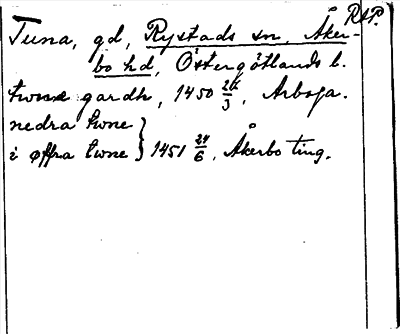 RAP.
Tuna, gd, Rystads sn, Åker-
bo hd, Östergötlands l.
twna gardh, 1450 26/3, Arboga.
nedra twne
i øffra twne } 1451 24/6, Åkerbo ting.